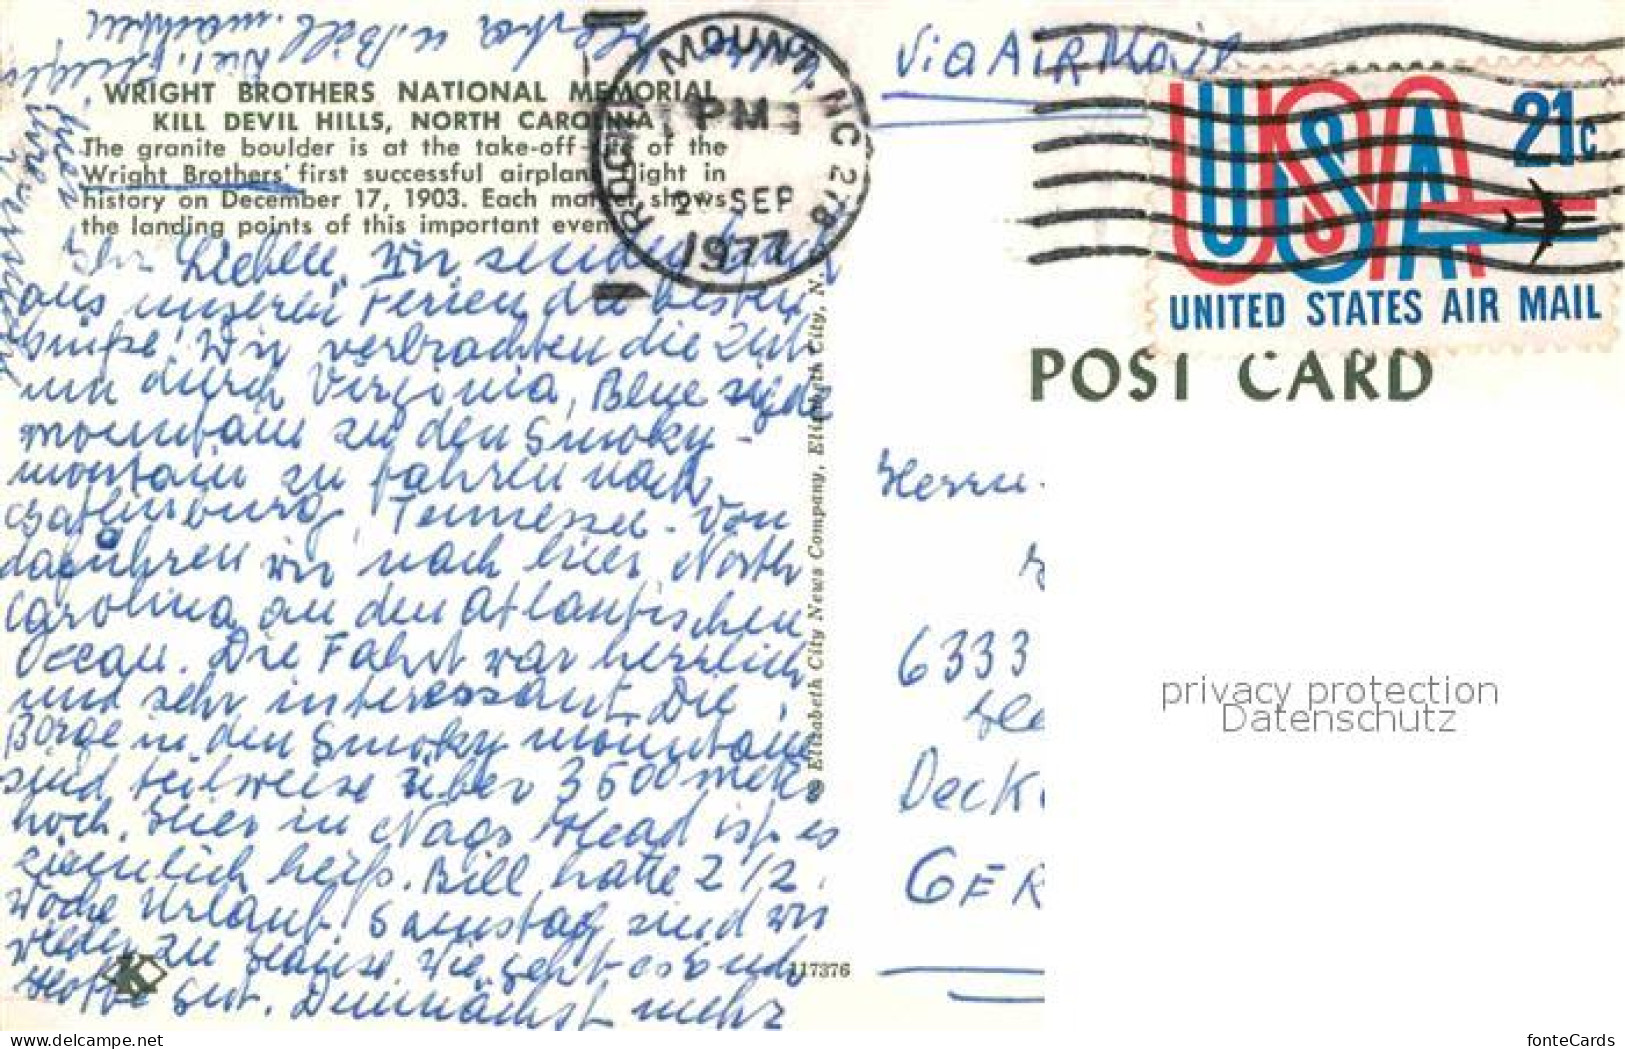 WRIGHT BROTHERS NATIONAL MEMORIAL
KILL DEVIL HILLS, NORTH CAROLINA
The granite boulder is at the take-off of the
Wright Brothers' first successful airplane flight in
history on December 17, 1903. Each marker shows
the landing points of this important event.
Ihr Lieben, Wir senden Euch
aus unseren Ferien die besten
Grüße! Wir verbrachten die Zeit
um durch Virginia, Blue ridge
mountain zu den Smoky-
montain zu fahren nach
Gatlinburg, Tennessee. Von
da führen wir nach hier, North
Carolina an den atlantischen
Ocean. Die Fahrt war herrlich
und sehr interessant. Die
Berge in den Smoky mountain
sind teilweise über 3500 meter
hoch. Hier in Nags Head ist es
ziemlich heiß. Bill hatte 2 1/2
Woche Urlaub. Samstag sind wir
wieder zu Hause. Wie geht es Euch
Hoffe gut. Demnächst mehr
u. Bill
© Elizabeth City News Company, Elizabeth City, N.
117376
K
ROCKY MOUNT, NC 278
PM
2 SEP
1977
Via AiR Mail
USA 21c
UNITED STATES AIR MAIL
POST CARD
Herrn
6333
Deck
GER
privacy protection
Datenschutz
www.ansichtskarten-center.de
fonteCards